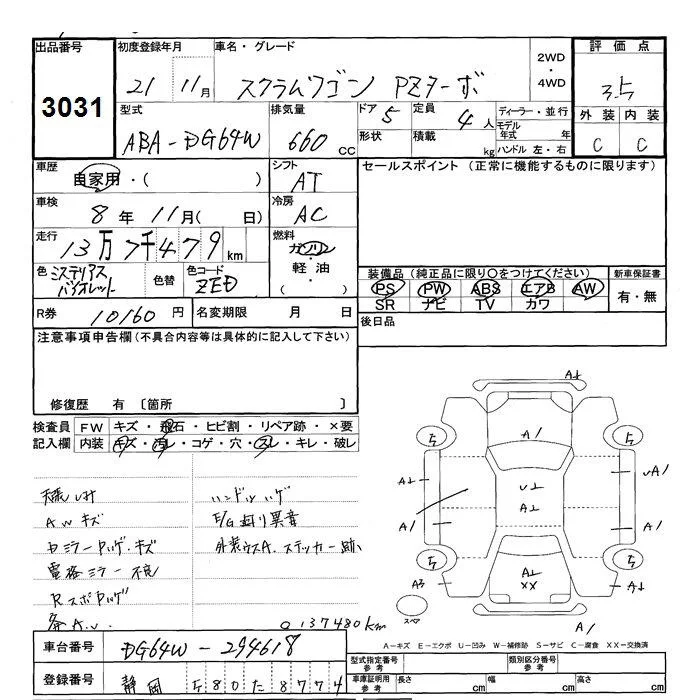 出品番号
3031
初度登録年月
21 11月
車名・グレード
スクラムワゴン PZターボ
2WD
・
4WD
評価点
3.5
外装 内装
C C
型式
ABA-DG64W
排気量
660 CC
ドア 5
形状
定員 4人
積載 kg
ディーラー・並行
モデル年式 年
ハンドル 左・右
車歴
自家用・( )
シフト
AT
セールスポイント (正常に機能するものに限ります)
車検
8年 11月( 日)
冷房
AC
走行
13万7千479km
燃料
ガソリン
・
軽油
・( )
色
ミステリアスバイオレット
色替
色コード
ZED
装備品 (純正品に限り○をつけてください)
PS PW ABS エアB AW
SR ナビ TV カワ
新車保証書
有・無
R券 10160円
名変期限 月 日
後日品
注意事項申告欄(不具合内容等は具体的に記入して下さい)
修復歴 有 〔箇所 〕
検査員記入欄
FW キズ・飛石・ヒビ割・リペア跡・×要
内装 キズ・汚レ・コゲ・穴・スレ・キレ・破レ
天張しみ
AWキズ
電格ミラー不良
ハンドルハゲ
E/G廻り異音
外装ウスA. ステッカー跡
137480km
A↓
A1
5
5
A↓
U↓
A↓
UA1
A1
A1
5
5
A3
A↓
××
A↓
スペア
A1
A-キズ E-エクボ U-凹み W-補修跡 S-サビ C-腐食 XX-交換済
車台番号
DG64W-294618
登録番号
静岡 580 た 8774
型式指定番号
参考
類別区分番号
参考
車庫証明用
参考
長さ cm
幅 cm
高さ cm